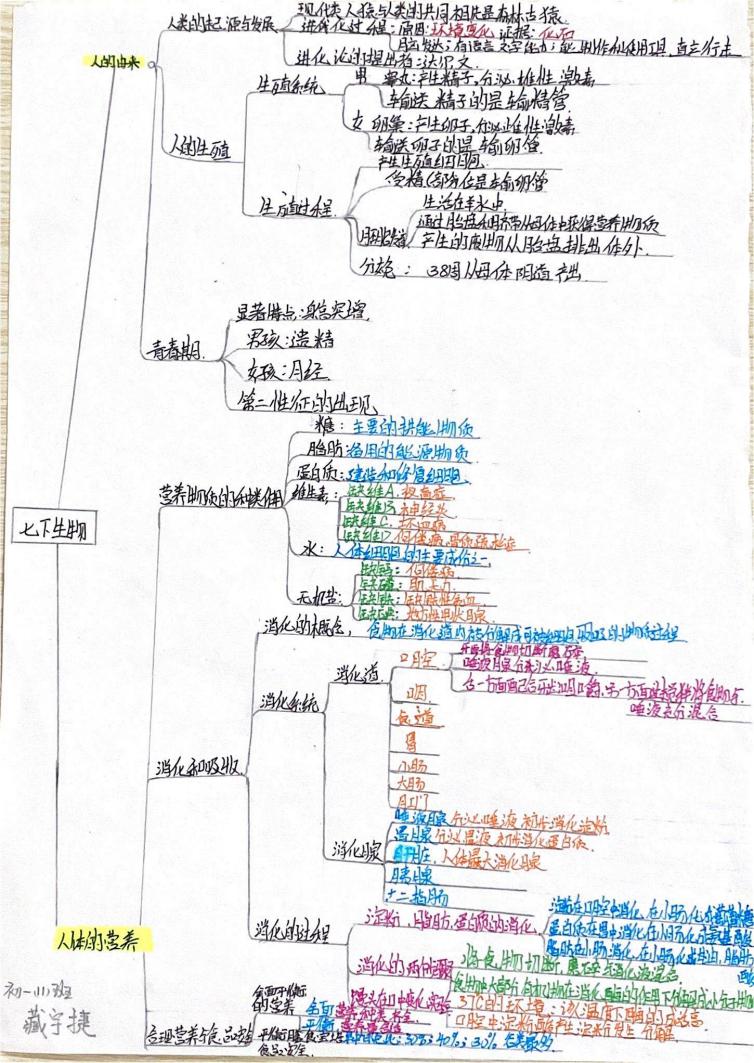 七下生物
人的由来
人类的起源与发展
现代类人猿与人类的共同祖先是森林古猿
进化过程:原因:环境变化 证据:化石
脑发达;有语言 文字能力;能制作和使用工具,直立行走
进化论的提出者:达尔文
人的生殖
生殖系统
男 睾丸:产生精子,分泌雄性激素
输送精子的是输精管
女 卵巢:产生卵子,分泌雌性激素
输送卵子的是输卵管
生殖过程
产生生殖细胞
受精(部位是输卵管
胚胎发育
生活在羊水中
通过胎盘和脐带从母体中获得营养物质
产生的废物从胎盘排出体外
分娩: 38周从母体阴道产出
青春期
显著特点:身高突增
男孩:遗精
女孩:月经
第二性征的出现
人体的营养
营养物质的种类作用
糖:主要的供能物质
脂肪:备用的能源物质
蛋白质:建造和修复细胞
维生素:
缺维A 夜盲症
缺维B 神经炎
缺维C 坏血病
缺维D 佝偻病,骨质疏松症
水:人体细胞的主要成份之一
无机盐:
缺钙:佝偻病
缺磷:肌无力
缺铁:缺铁性贫血
缺碘:地方性甲状腺
消化和吸收
消化的概念,食物在消化道内被分解成可被细胞吸收的物质过程
消化系统
消化道
口腔
牙齿将食物切断磨碎
唾液腺分泌唾液
唾液充分混合
咽
食道
胃
小肠
大肠
肛门
消化腺
唾液腺 分泌唾液 初步消化淀粉
胃腺 分泌胃液 初步消化蛋白质
肝脏,人体最大消化腺
胰腺
十二指肠
消化的过程
淀粉、脂肪、蛋白质的消化
淀粉在口腔中消化,在小肠化成葡萄糖
蛋白质在胃中消化,在小肠化成氨基酸
脂肪在小肠消化,在小肠化成甘油,脂肪酸
将食物切断,磨碎与消化液混合
馒头在口中变化实验
37℃的环境:该温度下酶的活性高
合理营养与食品安全
全面平衡的营养
全面 营养种类齐全
平衡
平衡膳食宝塔
30%;40%;30%
食品安全
初一(11)班
藏宇捷